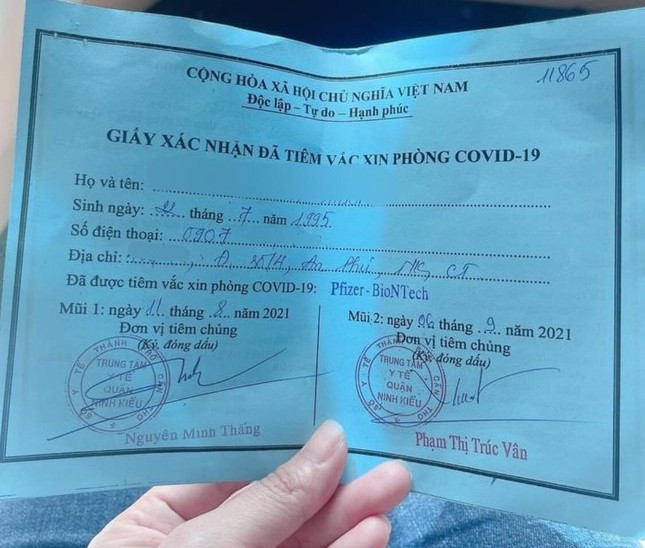 11865
CỘNG HÒA XÃ HỘI CHỦ NGHĨA VIỆT NAM
Độc lập – Tự do – Hạnh phúc
GIẤY XÁC NHẬN ĐÃ TIÊM VẮC XIN PHÒNG COVID-19
Họ và tên:
Sinh ngày: tháng 7 năm 1995
Số điện thoại: 0907
Địa chỉ: Đ 30/4, An Phú, NK, CT
Đã được tiêm vắc xin phòng COVID-19: Pfizer - BioNTech
Mũi 1: ngày 11 tháng 8 năm 2021
Đơn vị tiêm chủng
(Ký, đóng dấu)
SỞ Y TẾ THÀNH PHỐ CẦN THƠ
TRUNG TÂM
Y TẾ
QUẬN
NINH KIỀU
Nguyễn Minh Thắng
Mũi 2: ngày 06 tháng 9 năm 2021
Đơn vị tiêm chủng
(Ký, đóng dấu)
SỞ Y TẾ THÀNH PHỐ CẦN THƠ
TRUNG TÂM
Y TẾ
QUẬN
NINH KIỀU
Phạm Thị Trúc Vân